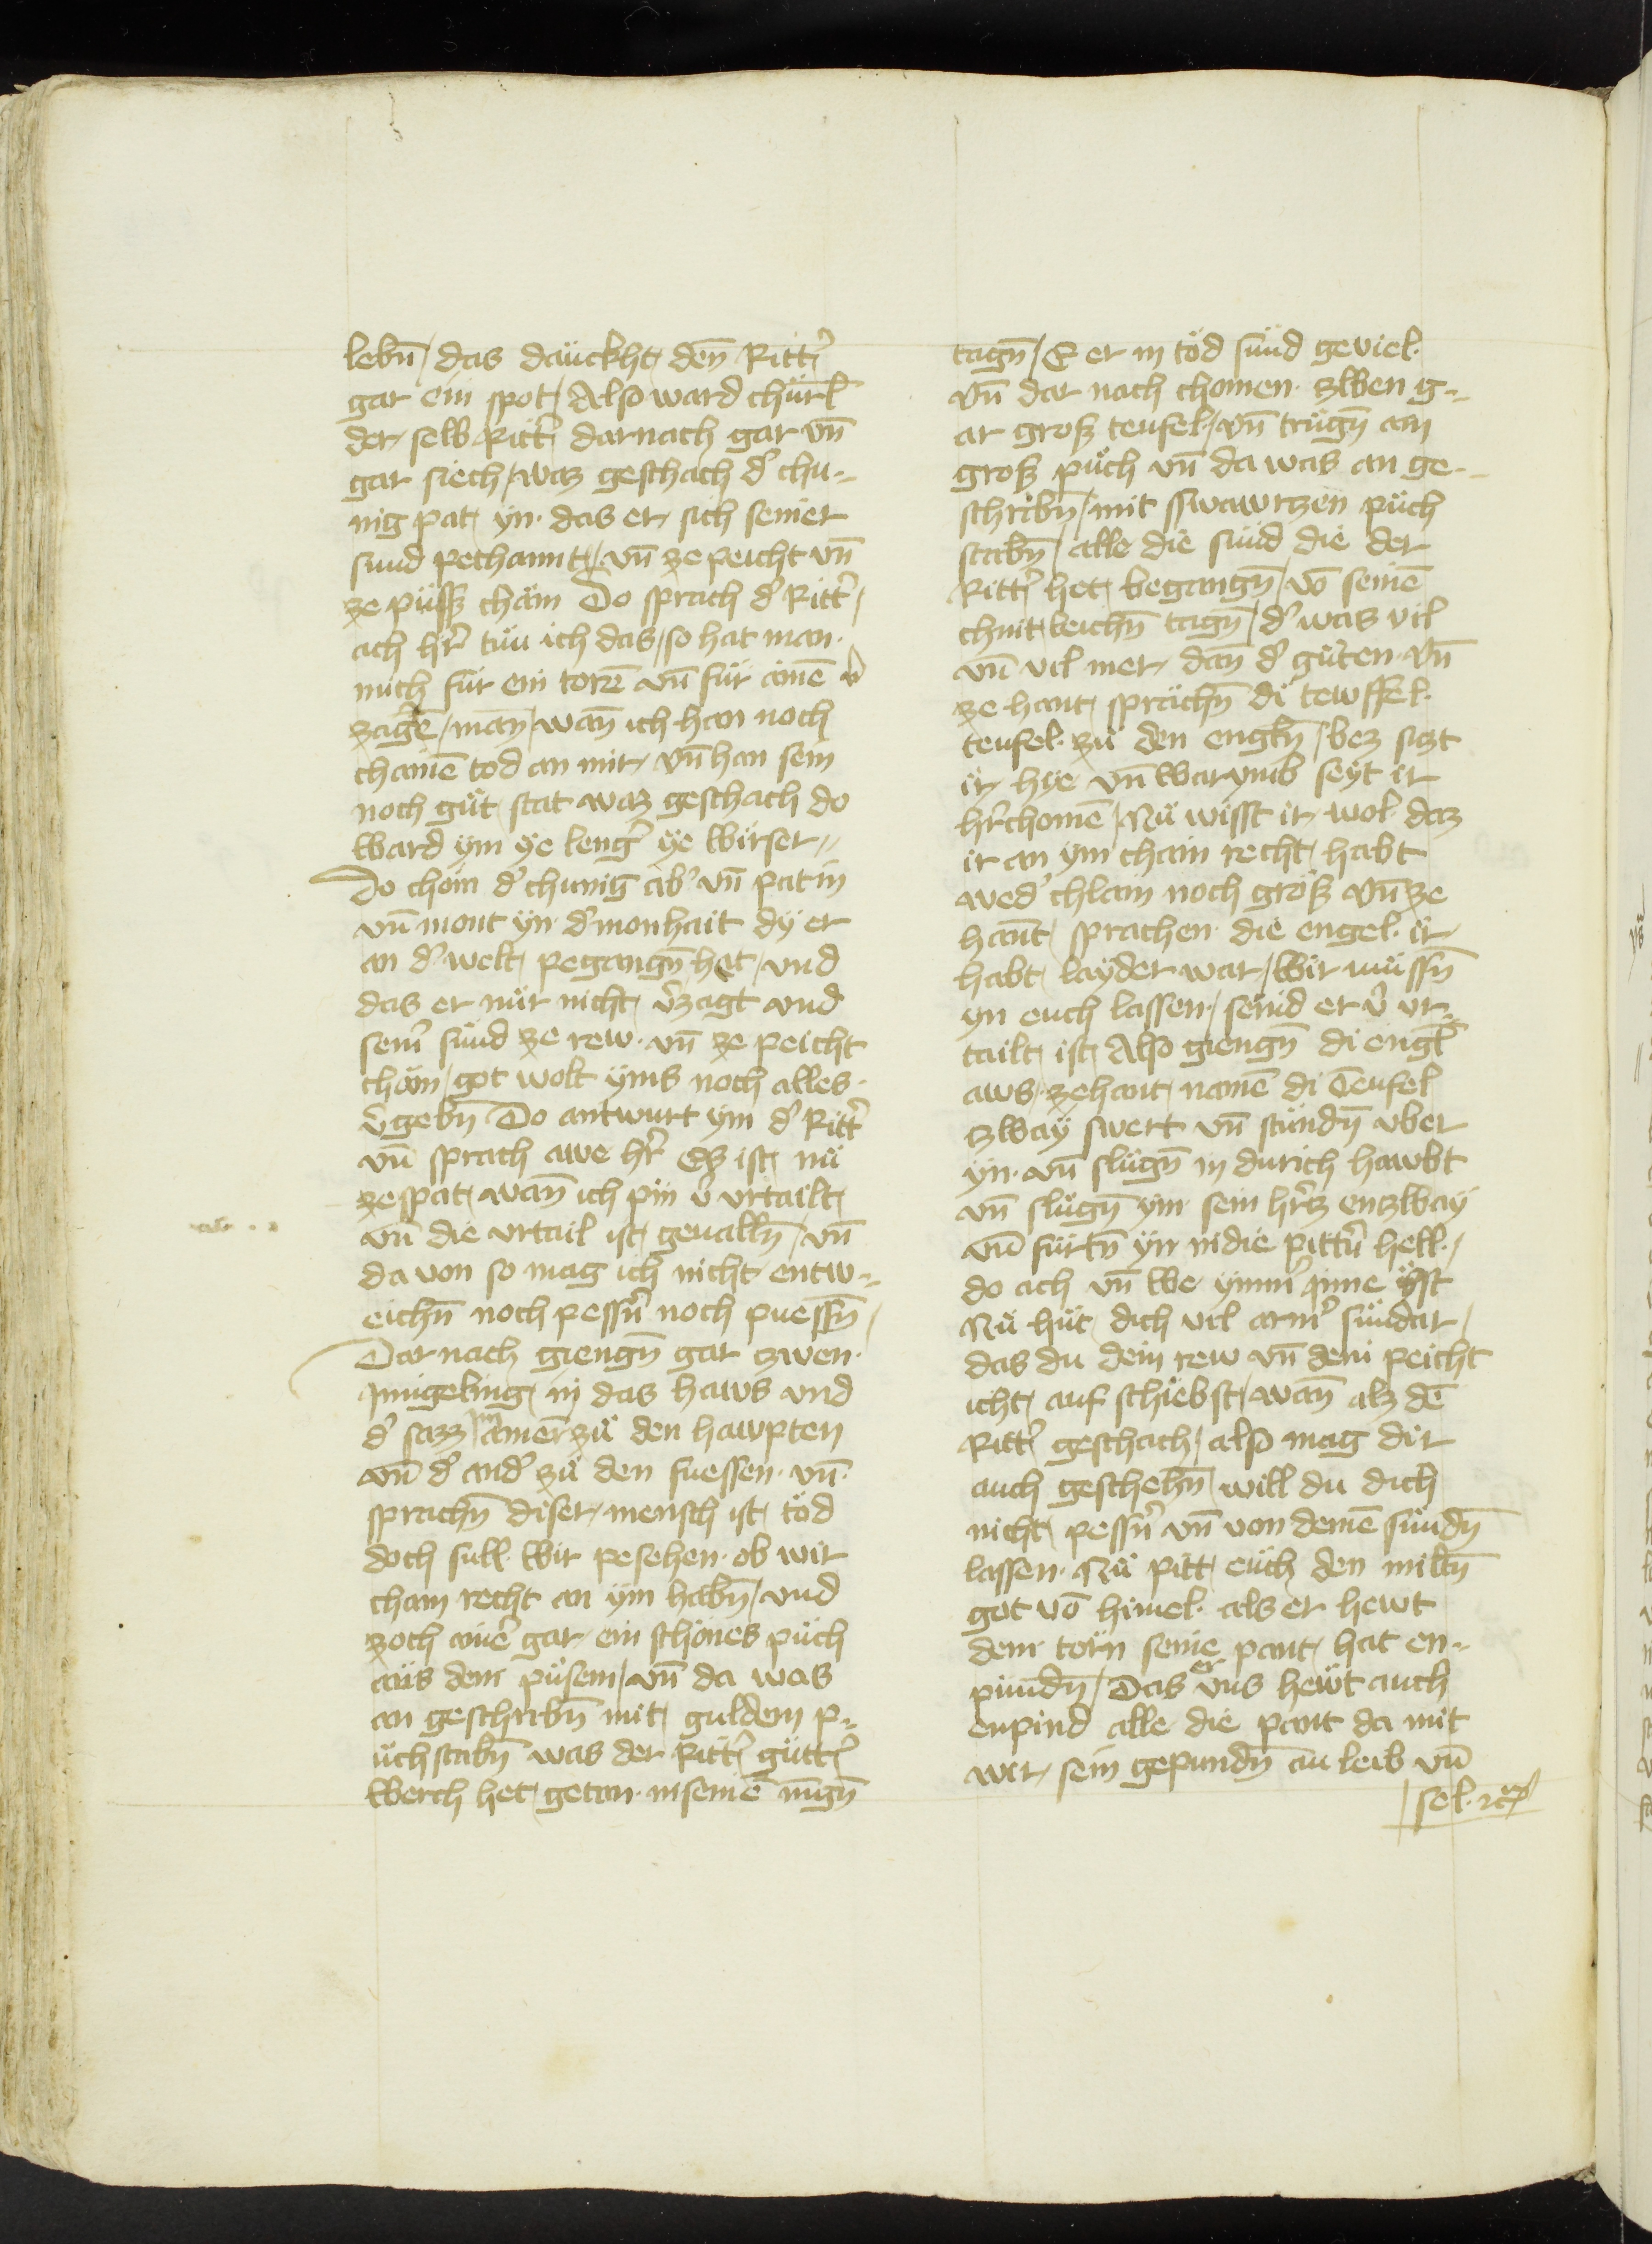 lebn̄ / das däuckht den̄ Ritt᷑
gar ein spot / Also ward chürl̄
der selb Ritt᷑ darnach gar vn̄
gar siech / waz geschach d᷑ chu=
nig pat yn · das er sich seiner
sund pechannt / vn̄ ze peicht vn̄
ze püssz chäm Do sprach d᷑ Ritt᷑ /
ach hr᷑ tün ich das / so hat man ·
mich für ein torē vn̄ für ainē v᷑
zagtē / man̄ / wan̄ ich han noch
chainē tod an mir / vn̄ han sein
noch güt stat waz geschach do
Ward ym ye leng᷑ ye wirser //
Do chom d᷑ chunig ab᷑ vn̄ pat in
vn̄ mont yn · d᷑ monhait dy er
an d᷑ welt pegangn̄ het / vnd
das er nür nicht v᷑zagt vnd
sein᷑ sünd ze rew · vn̄ ze peicht
chäm / got wolt yms noch alles ·
v᷑gebn̄ Do antwurt ym d᷑ Ritt᷑
vn̄ sprach awe hr᷑ Es ist nü
ze spat / wan̄ ich pin v᷑ vrtailt /
vn̄ die vrtail ist geualln̄ / vn̄
da von so mag ich nicht entw=
eichn̄ noch pessn᷑ noch puessn̄ /
Dar nach giengn̄ gar zwen ·
jungeling in das haws vnd
d᷑ sazz im ainer zü den hawpten
vn̄ d᷑ and᷑ zü den fuessen · vn̄ ·
sprachn̄ diser mensch ist töd
doch süll wir pesehen · ob wir
chain recht an ym habn̄ / vnd
zoch ain᷑ gar ein schönes püch
aüs dem püsem / vn̄ da was
an geschribn̄ mit guldem p=
üchstabn̄ was der Ritt᷑ gütt᷑
Werch het getan · in seinē iu̇gn̄
tagn̄ / E er in töd sünd geviel ·
vn̄ dar nach chomen · zwen g=
ar grosz teufel / vn̄ trügn̄ ain
grosz püch vn̄ da was an ge=
schribn̄ / mit sswawrzen püch
stabn̄ / alle die sünd die der
Ritt᷑ het begangn̄ / vō seinē
chint leichn̄ tagn̄ / d᷑ was vil
vn̄ vil mer · dan̄ d᷑ güten · vn̄
ze hant sprächn̄ di tewffel ·
teufel · zü den engln̄ / bez sizt
ir hye vn̄ warumb seyt ir
hr᷑chomē / Nü wisst ir wol · daz
ir an ym chain recht habt
wed᷑ chlain noch grösz vn̄ ze
hant sprachen · die engel · ir
habt layder war / Wir müssn̄
yn euch lassen / seind er v᷑ vr=
tailt ist Also giengn̄ di engl̄
aws · zehant namē di Teufel
zway swert vn̄ stündn̄ vber
yn · vn̄ slügn̄ in durich hawbt
vn̄ slügn̄ ym · sein hr᷑z enzway
vn̄ fürtn̄ yn in die pittn᷑ hell · /
do ach vn̄ we ymm᷑ jnne yst
Nü hüt dich vil arm᷑ sündar /
das du dein rew vn̄ dein peicht
icht auf schiebst / wan̄ alz dē
Ritt᷑ geschach / also mag dir
auch geschehn̄ / will du dich
nicht pessn᷑ vn̄ von deinē sündn̄
lassen · Nü pitt euch den miltn̄
got vō himel · als er hewt
dem torn seine pant hat en=
pundn̄ / Das er vns hewt auch
enpind alle die pant da mit
wir sein gepundn̄ an leib vn̄
sel · rc᷑